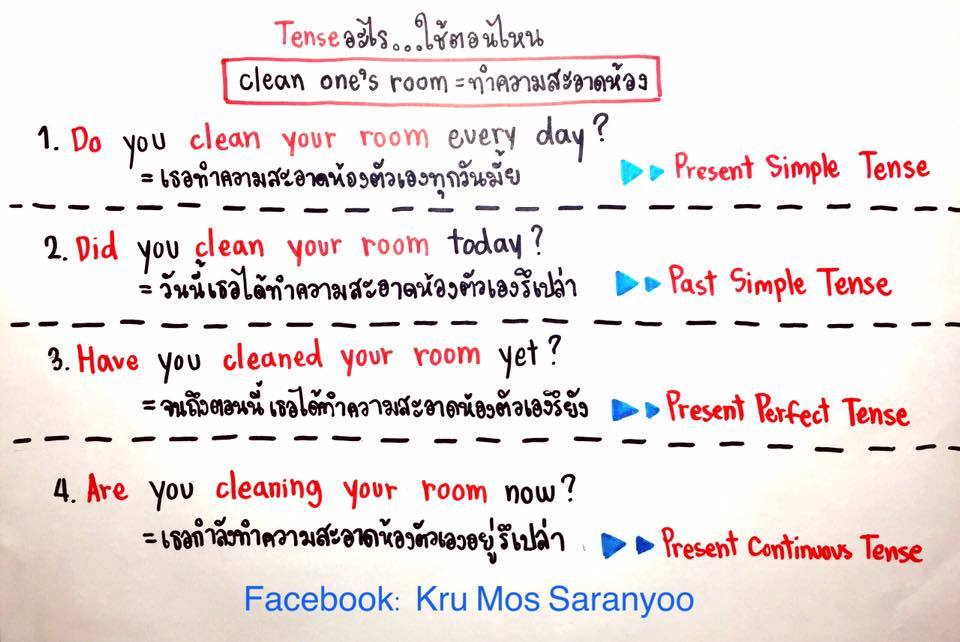 Tense อะไร...ใช้ตอนไหน
clean one's room = ทำความสะอาดห้อง
1. Do you clean your room every day?
= เธอทำความสะอาดห้องตัวเองทุกวันมั้ย
Present Simple Tense
2. Did you clean your room today?
= วันนี้เธอได้ทำความสะอาดห้องตัวเองรึเปล่า
Past Simple Tense
3. Have you cleaned your room yet?
= จนถึงตอนนี้ เธอได้ทำความสะอาดห้องตัวเองรึยัง
Present Perfect Tense
4. Are you cleaning your room now?
= เธอกำลังทำความสะอาดห้องตัวเองอยู่รึเปล่า
Present Continuous Tense
Facebook: Kru Mos Saranyoo